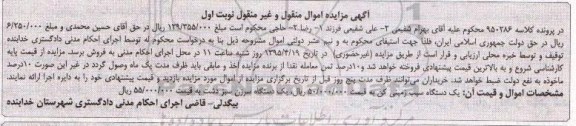 آگهی مزایده اموال منقول و غیر منقول نوبت اول
در پرونده کلاسه ۹۵۰۲۸۶ محکوم علیه آقای بهرام شفیعی ۲- علی شفیعی فرزند ۱- رضا ۲- حاجی محکوم است مبلغ ۱۲۹/۳۵۵/۰۰۰ ریال در حق آقای حسین محمدی و مبلغ ۶/۲۵۰/۰۰۰
ریال در حق دولت جمهوری اسلامی ایران، فلذا جهت استیفای محکوم به و نیم عشر دولتی اموال مشروحه ذیل بنا به درخواست محکوم له توسط اجرای احکام مدنی دادگستری خدابنده
توقیف و توسط خبره محلی ارزیابی و قرار است از طریق مزایده (غیرحضوری) در تاریخ ۱۳۹۵/۴/۱۹ روز شنبه ساعت ۱۱ در محل اجرای احکام مدنی به فروش برسد. مزایده از قیمت پایه
کارشناسی شروع و به بالاترین قیمت پیشنهادی فروخته خواهد شد و ۱۰درصد ثمن معامله نقدا از برنده مزایده اخذ و مابقی باید ظرف مدت یک ماه وصول گردد در غیر این صورت ۱۰درصد
ماخوذه به نفع دولت ضبط خواهد شد. خریداران می‌توانند ظرف مدت پنج روز قبل از تاریخ برگزاری مزایده از اموال مورد مزایده بازدید و قیمت پیشنهادی خود را به دایره اجرا ارائه نمایند.
مشخصات اموال و قیمت آن: یک دستگاه سیب زمینی کن به قیمت ۵۰/۰۰۰/۰۰۰ ریال، یک دستگاه سورن سبز دشت به قیمت ۵۵/۰۰۰/۰۰۰ ریال
بیگدلی- قاضی اجرای احکام مدنی دادگستری شهرستان خدابنده